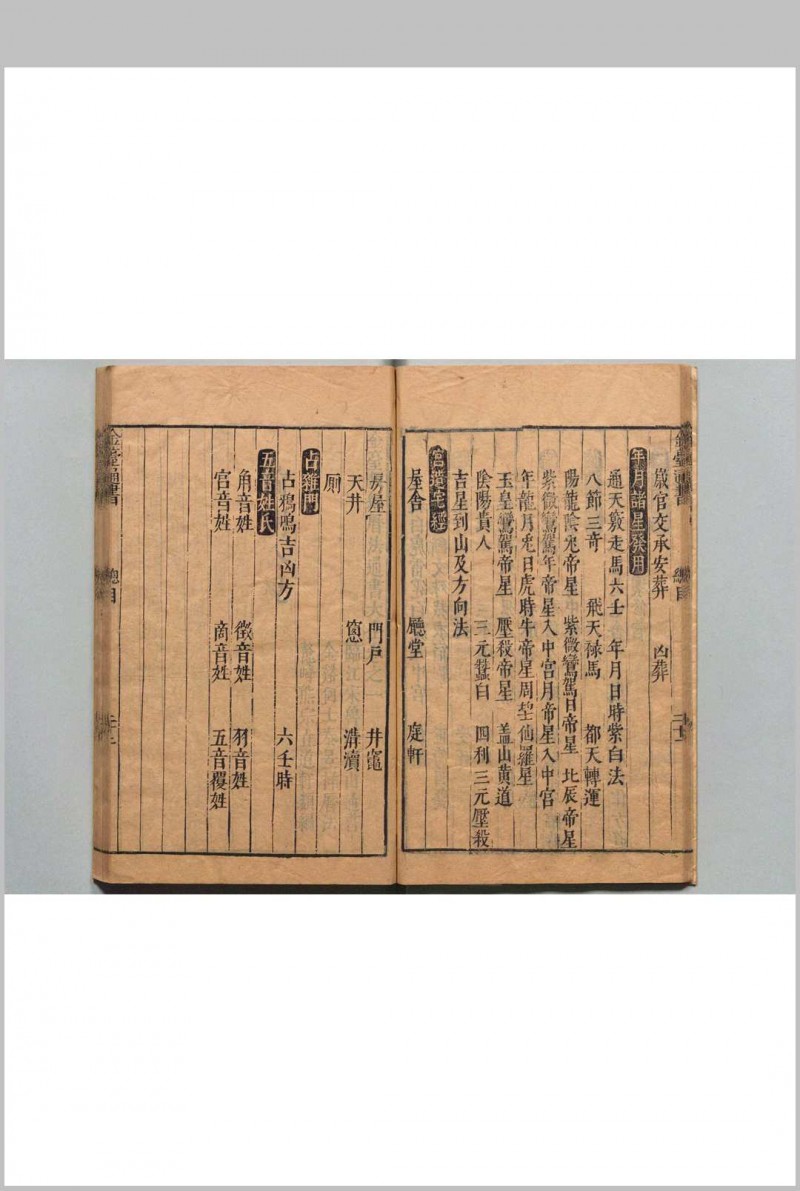 歲官交承安葬 凶葬
年月諸星發用
通天竅走馬六壬 年月日時紫白法
八節三奇 飛天祿馬 都天轉運
陽龍陰 帝星 紫微鸞駕日帝星 北辰帝星
紫微鸞駕年帝星入中宮月帝星入中宮
年龍月 日虎時牛帝星周堂仙羅星
玉皇鸞駕帝星 壓殺帝星 盖山黄道
陰陽貴人 三元 白 四利三元壓殺
吉星到山及方向法
宮造宅經
屋舍 廳堂 庭軒
房屋 門戸 井竈
天井 窻 溝瀆
厠
占雜門
占鴉鳴吉凶方 六壬時
五音姓氏
角音姓 徵音姓 羽音姓
宫音姓 商音姓 五音覆姓
總目
總目